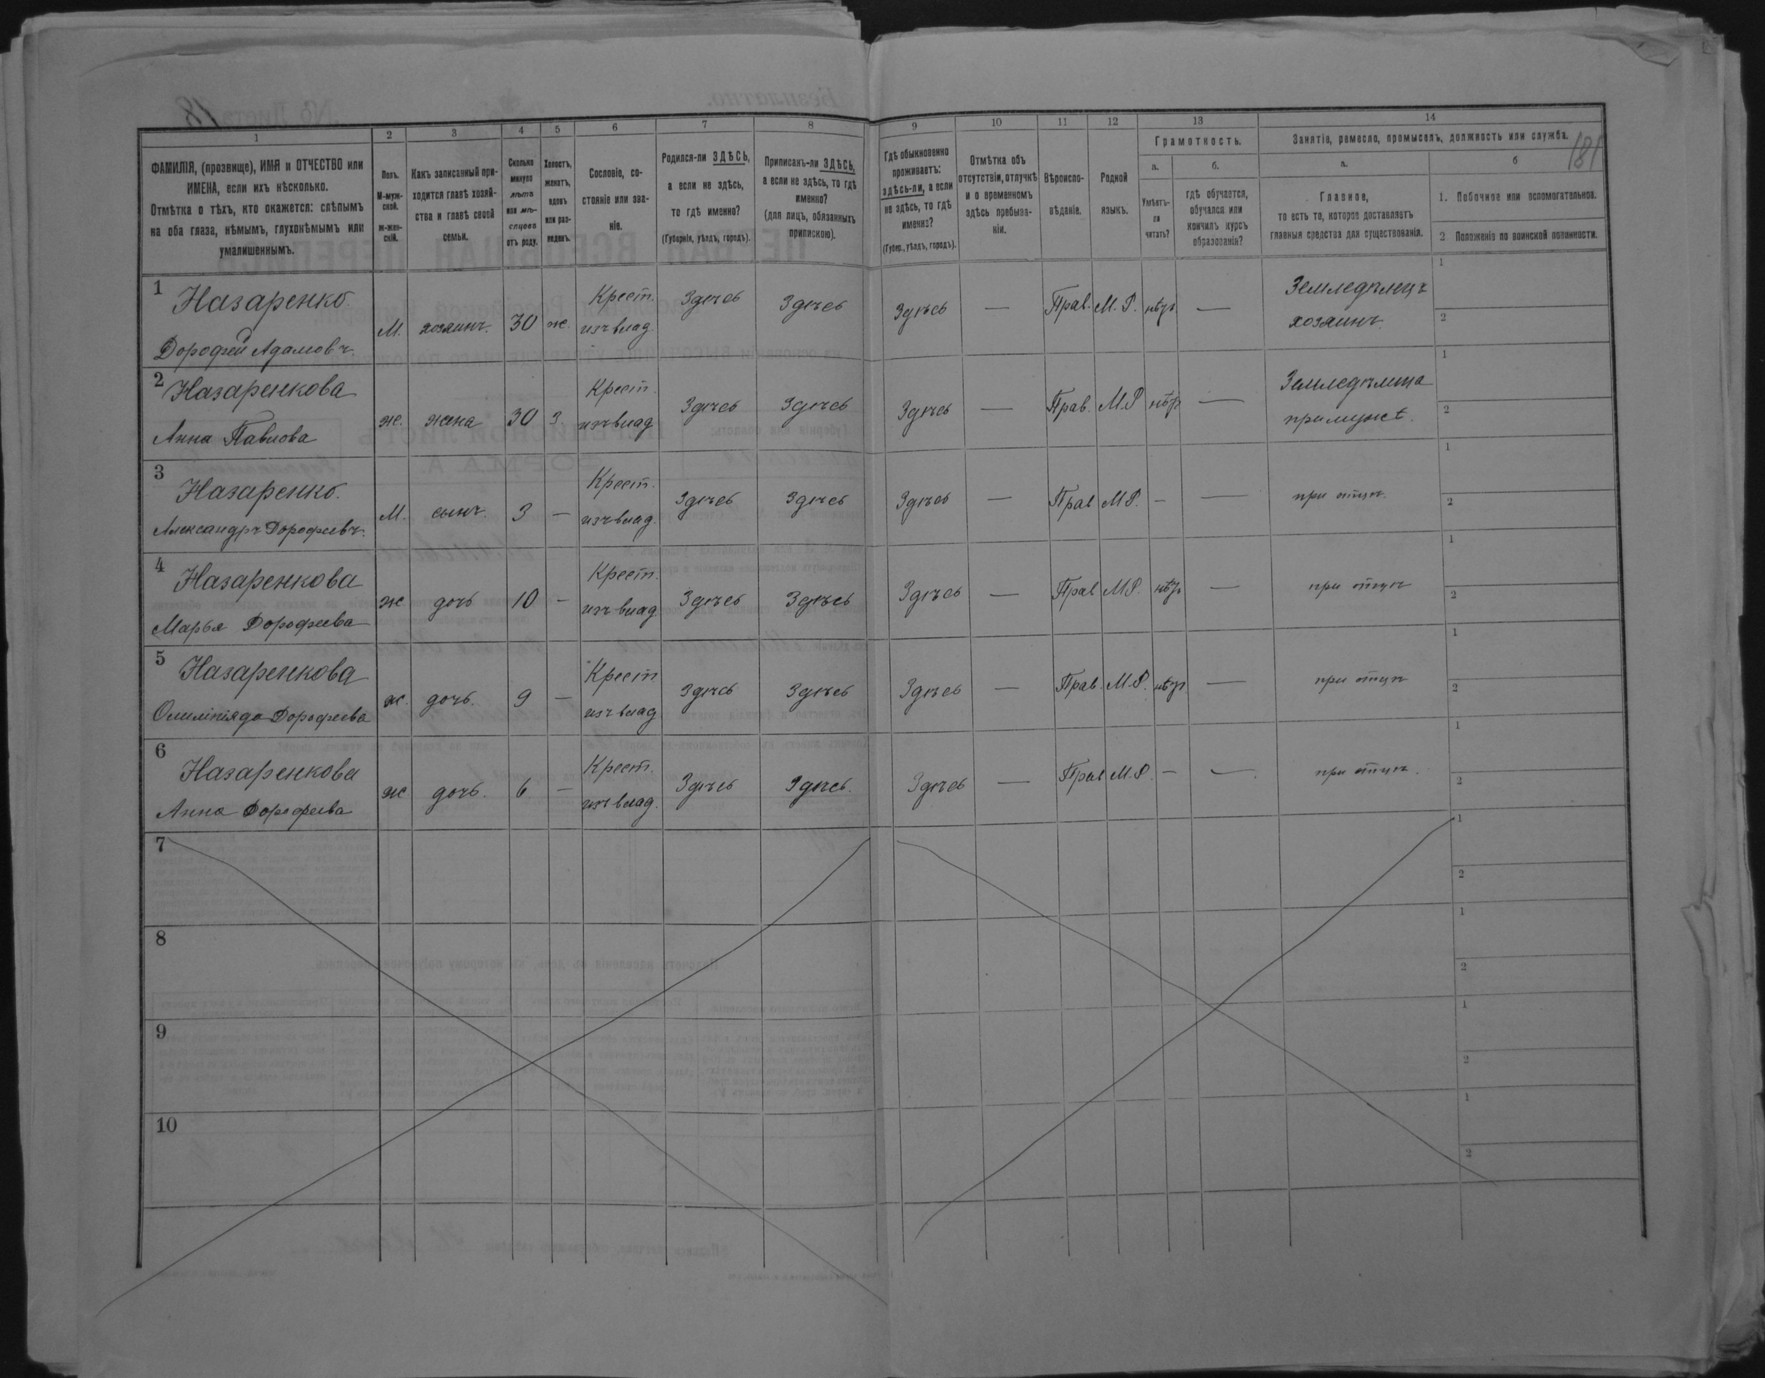 1 2 3 4 5 6 7 8 9 10 11 12 13 14
181
ФАМИЛІЯ, (прозвище), ИМЯ и ОТЧЕСТВО или
ИМЕНА, если ихъ нѣсколько.
Отмѣтка о тѣхъ, кто окажется: слѣпымъ
на оба глаза, нѣмымъ, глухонѣмымъ или
умалишеннымъ.
Полъ.
М-муж-
ской.
ж-жен-
скій.
Какъ записанный при-
ходится главѣ хозяй-
ства и главѣ своей
семьи.
Сколько
минуло
лѣтъ
или мѣ-
сяцевъ
отъ роду.
Холостъ,
женатъ,
вдовъ
или раз-
веденъ.
Сословіе, со-
стояніе или зва-
ніе.
Родился-ли ЗДѢСЬ,
а если не здѣсь,
то гдѣ именно?
(Губернія, уѣздъ, городъ).
Приписанъ-ли ЗДѢСЬ,
а если не здѣсь, то гдѣ
именно?
(для лицъ, обязанныхъ
припискою).
Гдѣ обыкновенно
проживаетъ:
здѣсь-ли, а если
не здѣсь, то гдѣ
именно?
(Губер., уѣздъ, городъ).
Отмѣтка объ
отсутствіи, отлучкѣ
и о временномъ
здѣсь пребыва-
ніи.
Вѣроиспо-
вѣданіе.
Родной
языкъ.
Грамотность.
а.
Умѣетъ-
ли
читать?
б.
гдѣ обучается,
обучался или
кончилъ курсъ
образованія?
Занятіе, ремесло, промыселъ, должность или служба.
а.
Главное,
то есть то, которое доставляетъ
главныя средства для существованія.
б
1. Побочное или вспомогательное.
2 Положеніе по воинской повинности.
1 Назаренко Крест. Здѣсь Здѣсь Здѣсь — Прав. М. Р. нѣтъ — Земледѣлецъ 1
Дорофей Адамовъ. М. хозяинъ. 30 ж. изъ влад хозяинъ. 2
2 Назаренкова Крест. Здѣсь Здѣсь Здѣсь — Прав. М.Р нѣтъ — Земледѣлица 1
Анна Павлова ж. жена 30 з. изъ влад при мужѣ. 2
3 Назаренко. Крест. Здѣсь Здѣсь Здѣсь — Прав М.Р. – — при отцѣ. 1
Александръ Дорофеевъ. М. сынъ. 3 — изъ влад. 2
4 Назаренкова Крест. Здѣсь Здѣсь Здѣсь — Прав М.Р. нѣтъ — при отцѣ 1
Марья Дорофеева ж дочь 10 – изъ влад 2
5 Назаренкова Крест Здѣсь Здѣсь Здѣсь — Прав. М.Р. нѣтъ — при отцѣ 1
Олимпіяда Дорофеева ж. дочь. 9 — изъ влад 2
6 Назаренкова Крест. Здѣсь Здѣсь. Здѣсь — Прав М.Р. – — при отцѣ. 1
Анна Дорофеева ж дочь. 6 — изъ влад. 2
7 1
2
8 1
2
9 1
2
10 1
2